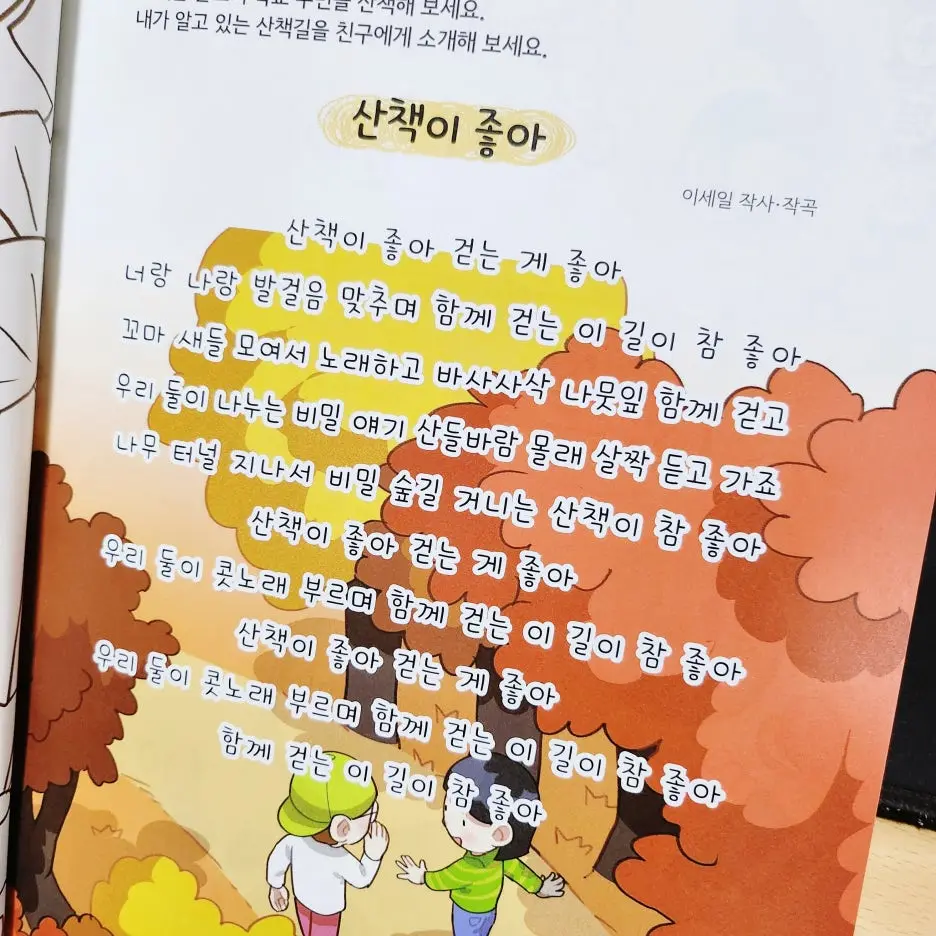 산책해 보세요.
내가 알고 있는 산책길을 친구에게 소개해 보세요.
산책이 좋아
이세일 작사·작곡
산책이 좋아 걷는 게 좋아
너랑 나랑 발걸음 맞추며 함께 걷는 이 길이 참 좋아
꼬마 새들 모여서 노래하고 바사사삭 나뭇잎 함께 걷고
우리 둘이 나누는 비밀 얘기 산들바람 몰래 살짝 듣고 가죠
나무 터널 지나서 비밀 숲길 거니는 산책이 참 좋아
산책이 좋아 걷는 게 좋아
우리 둘이 콧노래 부르며 함께 걷는 이 길이 참 좋아
산책이 좋아 걷는 게 좋아
우리 둘이 콧노래 부르며 함께 걷는 이 길이 참 좋아
함께 걷는 이 길이 참 좋아